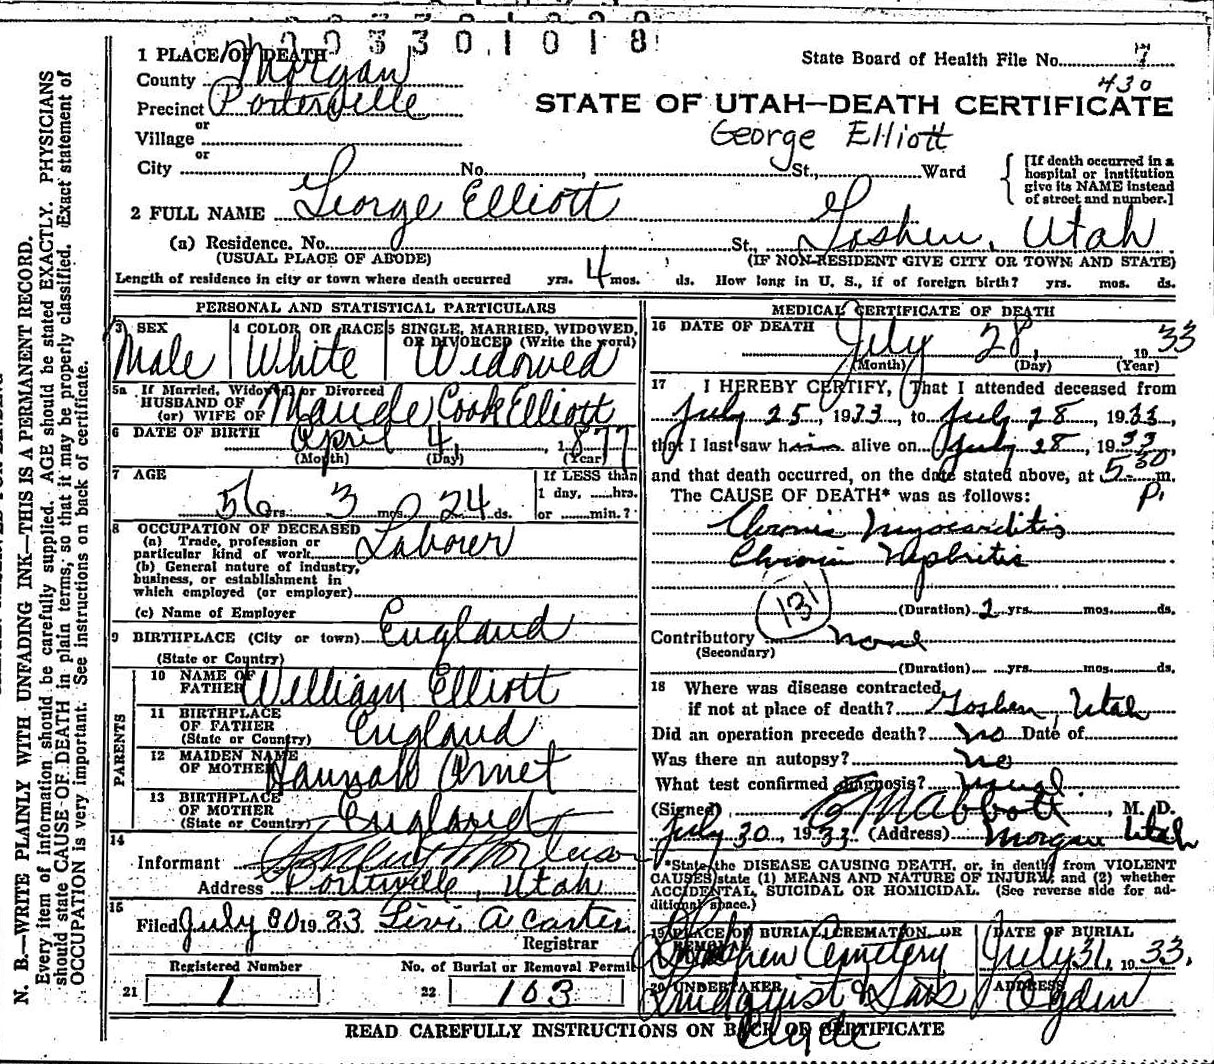 2 3 3 0 1 0 1 8
1 PLACE OF DEATH
State Board of Health File No. 7
County Morgan
430
Precinct Porterville
STATE OF UTAH—DEATH CERTIFICATE
or
Village
George Elliott
or
City No. , St., Ward
[If death occurred in a hospital or institution give its NAME instead of street and number.]
2 FULL NAME George Elliott
(a) Residence. No. St., Goshen, Utah
(USUAL PLACE OF ABODE) (IF NON-RESIDENT GIVE CITY OR TOWN AND STATE)
Length of residence in city or town where death occurred yrs. 4 mos. ds. How long in U. S., if of foreign birth? yrs. mos. ds.
PERSONAL AND STATISTICAL PARTICULARS
3 SEX Male
4 COLOR OR RACE White
5 SINGLE, MARRIED, WIDOWED, OR DIVORCED (Write the word) Widowed
5a If Married, Widowed, or Divorced
HUSBAND OF
(or) WIFE OF Maude Cook Elliott
6 DATE OF BIRTH April 4, 1877
(Month) (Day) (Year)
7 AGE 56 yrs. 3 mos. 24 ds.
If LESS than
1 day, ......hrs.
or ......min.?
8 OCCUPATION OF DECEASED
(a) Trade, profession or
particular kind of work Laborer
(b) General nature of industry,
business, or establishment in
which employed (or employer)
(c) Name of Employer
9 BIRTHPLACE (City or town) England
(State or Country)
PARENTS
10 NAME OF FATHER William Elliott
11 BIRTHPLACE OF FATHER (State or Country) England
12 MAIDEN NAME OF MOTHER Hannah
13 BIRTHPLACE OF MOTHER (State or Country) England
14
Informant
Address Porterville, Utah
15
Filed July 30 1933 Levi A Carter
Registrar
Registered Number
21 1
No. of Burial or Removal Permit
22 103
MEDICAL CERTIFICATE OF DEATH
16 DATE OF DEATH July 28, 1933
(Month) (Day) (Year)
17 I HEREBY CERTIFY, That I attended deceased from
July 25, 1933, to July 28, 1933,
that I last saw him alive on July 28, 1933,
and that death occurred, on the date stated above, at 5:30 P. m.
The CAUSE OF DEATH* was as follows:
Chronic Myocarditis
Chronic Nephritis
131
(Duration) 2 yrs. mos. ds.
Contributory none
(Secondary)
(Duration) yrs. mos. ds.
18 Where was disease contracted
if not at place of death? Goshen, Utah
Did an operation precede death? no Date of
Was there an autopsy? no
What test confirmed diagnosis? usual
(Signed) Abbott, M. D.
July 30, 1933 (Address) Morgan Utah
*State the DISEASE CAUSING DEATH, or, in deaths from VIOLENT
CAUSES state (1) MEANS AND NATURE OF INJURY; and (2) whether
ACCIDENTAL, SUICIDAL OR HOMICIDAL. (See reverse side for ad-
ditional space.)
19 PLACE OF BURIAL, CREMATION, OR REMOVAL Goshen Cemetery
DATE OF BURIAL July 31, 1933.
20 UNDERTAKER Lindquist & Sons
Clyde
ADDRESS Ogden
READ CAREFULLY INSTRUCTIONS ON BACK OF CERTIFICATE
N. B.—WRITE PLAINLY WITH UNFADING INK—THIS IS A PERMANENT RECORD.
Every item of information should be carefully supplied. AGE should be stated EXACTLY. PHYSICIANS
should state CAUSE OF DEATH in plain terms, so that it may be properly classified. Exact statement of
OCCUPATION is very important. See instructions on back of certificate.